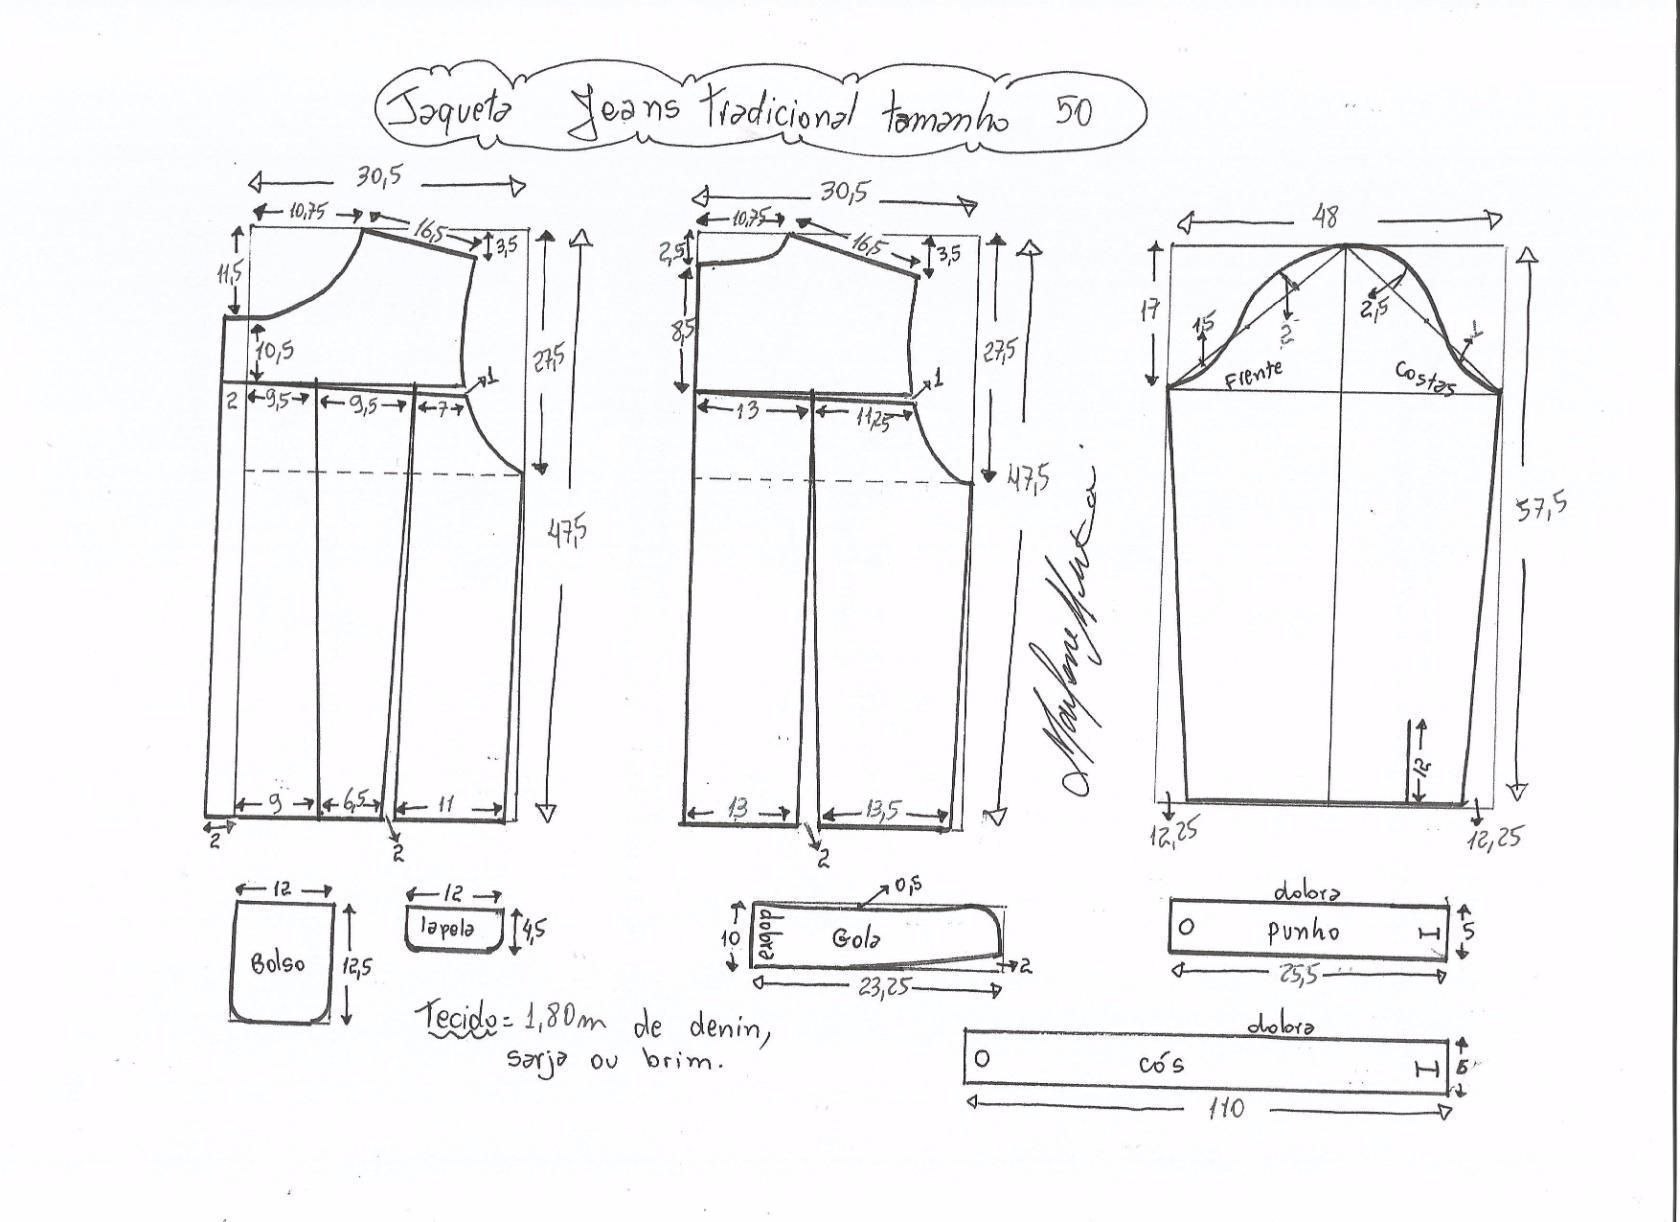 Jaqueta Jeans tradicional tamanho 50
30,5
10,75
16,5
3,5
11,5
10,5
1
27,5
2
9,5
9,5
7
47,5
9
6,5
11
2
2
30,5
10,75
16,5
3,5
2,5
8,5
1
27,5
13
11,25
47,5
13
13,5
2
48
17
1,5
2
2,5
1
Frente
Costas
57,5
12
12,25
12,25
12
Bolso
12,5
12
lapela
4,5
0,5
10
dobra
Gola
2
23,25
dobra
Punho
5
25,5
Tecido = 1,80m de denin,
sarja ou brim.
dobra
cós
110